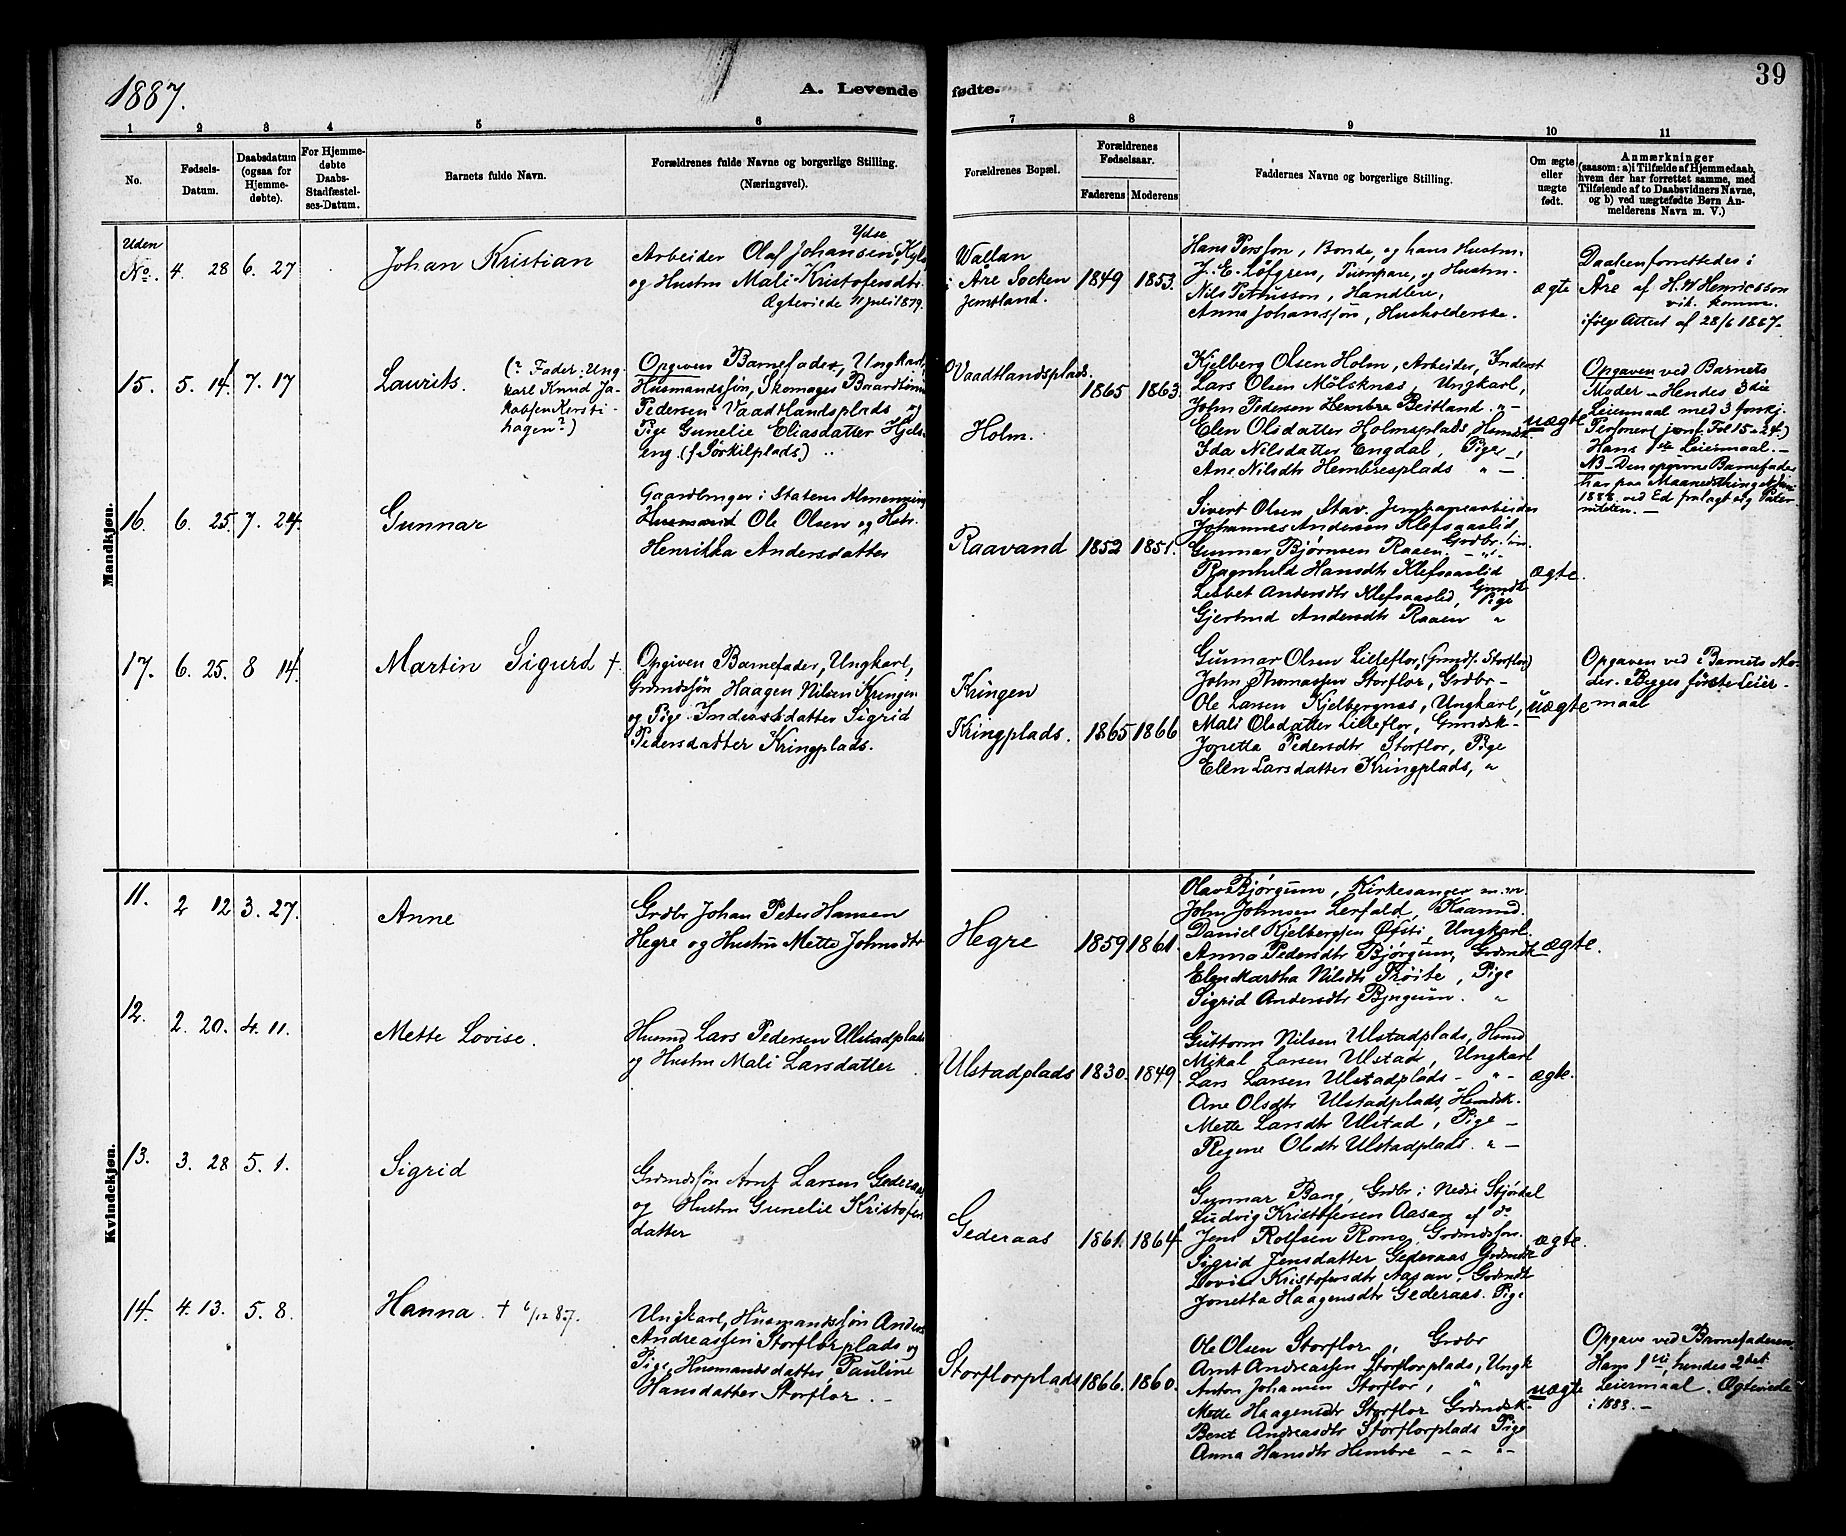 1887.
A. Levende fødte.
39
1 2 3 4 5 6 7 8 9 10 11
No.
Fødsels-Datum.
Daabsdatum (ogsaa for Hjemmedøbte).
For Hjemmedøbte Daabs-Stadfæstelses-Datum.
Barnets fulde Navn.
Forældrenes fulde Navne og borgerlige Stilling. (Næringsvei).
Forældrenes Bopæl.
Forældrenes Fødselsaar.
Faderens Moderens
Faddernes Navne og borgerlige Stilling.
Om ægte eller uægte født.
Anmærkninger
(saasom: a) i Tilfælde af Hjemmedaab, hvem der har forrettet samme, med Tilføiende af to Daabsvidners Navne, og b) ved uægtefødte Børn Anmelderens Navn m. V.)
Mandkjøn.
Uden No. 4. 28 6. 27
Johan Kristian
Ydse
Arbeider Olaf Johansen,
og Hustru Mali Kristofersdtr.
Ægteviede 11 Juli 1879.
Wallan
i Åre Socken
Jemtland.
1849 1853.
Hans Persson, Bonde, og hans Hustru.
J. E. Löfgren, og Hustru.
Nils Petrusson, Handlere,
Anna Johansson, Husholderske.
ægte
Daaben forrettedes i
Åre af H. W Henricsson
vik. komm.
ifølge Attest af 28/6 1887.
15. 5. 14. 7. 17
Laurits.
(? Fader: Ung-
karl Knud Ja-
kobsen Kersti-
hagen?)
Opgiven Barnefader, Ungkarl,
Husmandssøn, Skomager Baard
Pedersen Vaadtlandsplads og
Pige Gunelie Eliasdatter Hjels-
eng. (f Torkilplads)
Vaadtlandsplads.
Holm.
1865 1863.
Kjelberg Olsen Holm, Arbeider, Inderst
Lars Olsen Mölsknas, Ungkarl,
John Pedersen Hembre Beitland. "-
Elen Olsdatter Holmsplads, Hmdsk.
Ida Nilsdatter Engdal, Pige -
Ane Nilsdtr Hembresplads " -
uægte
Opgaven ved Barnets
Moder - Hendes 3die
Leiermaal med 3 forskj.
Personer jevnf Fol 15 & 24.)
Hans 1ste Leiermaal. -
NB - Den opgivne Barnefader
har paa Maanedsthinget Juni
1888 ved Ed fralagt sig Pater-
niteten. -
16. 6. 25. 7. 24
Gunnar
Gaardbruger i Statens Almenning
Husmand Ole Olsen og Hstr.
Henrikka Andersdatter
Raavand
1852 1851.
Sivert Olsen, Stav. Jernbanearbeider
Johannes Andersen Klefsaaslid
Gunnar Bjørnsen Raaen. Grdbr.
Ragnhild Hansdtr Klefsaaslid
Lisbet Andersdtr Klefsaaslid, Pige
Gjertrud Andersdtr Raaen "
ægte.
17. 6. 25. 8 14
Martin Sigurd †.
Opgiven Barnefader, Ungkarl,
Grdmdssøn Haagen Nilsen Kringen
og Pige. Inderstdatter Sigrid
Pedersdatter Kringplads.
Kringen
Kringplads.
1865 1866
Gunnar Olsen Lilleflor, (Grmdf. Storflor)
John Thomassen Storflor, Grdbr -
Ole Larsen Kjelbergnas, Ungkarl,
Mali Olsdatter Lilleflor, Grmdsk -
Jonetta Pedersdtr Storflor, Pige
Elen Larsdatter Kringplads, "
uægte
Opgaven ved i Barnets Mo-
der. Begges første Leier-
maal
Kvindekjøn.
11. 2 12 3. 27.
Anne
Grdbr Johan Peter Hansen
Hegre og Hustru Mette Johnsdtr
Hegre
1859 1861.
Olav Bjørgum, Kirkesanger m. m.
John Johnsen Lerfald, Kaarmd.
Daniel Kjelbergsen Øfsti, Ungkarl.
Anna Pedersdtr Bjørgum, Grdmdk
Elen Martha Nilsdtr Trøite, Pige
Sigrid Andersdtr Bjørgum. "
ægte.
12. 2. 20. 4. 11.
Mette Lovise.
Husmd Lars Pedersen Ulstadplads
og Hustru Mali Larsdatter
Ulstadplads
1830. 1849.
Guttorm Nilsen Ulstadplads, Hsmd
Mikal Larsen Ulstad, Ungkarl
Lars Larsen Ulstadplads - " -
Ane Olsdtr Ulstadplads, Hsmdsk.
Mette Larsdtr Ulstad, Pige -
Regine Olsdtr Ulstadplads. " -
ægte.
13. 3. 28 5. 1.
Sigrid
Grdmdssøn Arnt Larsen Gederaas
og Hustru Gunelie Kristofers-
datter
Gederaas
1861. 1864.
Gunnar Bang, Grdbr i Nedre Stjørdal
Ludvig Kristofersen Aasan af do
Jens Rolfsen Romo, Grdmdssøn.
Sigrid Jensdatter Gederaas Grdmdk
Lovise Kristofersdtr Aasan, Grdmdk
Jonetta Haagensdtr Gederaas. Pige
ægte.
14. 4. 13. 5. 8.
Hanna. † 6/12 87.
Ungkarl, Husmandssøn Anders
Andreassen Storflorplads og
Pige, Husmandsdatter Pauline
Hansdatter Storflor. -
Storflorplads
1866. 1860.
Ole Olsen Storflor, Grdbr
Arnt Andreassen Storflorplads, Ungk
Anton Johansen Storflor, "
Mette Haagensdtr Storflor Grdmdsk-
Beret Andreasdtr Storflorplads Pige
Anna Hansdtr Hembre - - " -
uægte
Opgave ved Barnefaderen.
Hans 1ste, hendes 2det
Leiermaal. Ægteviede
i 1888. -